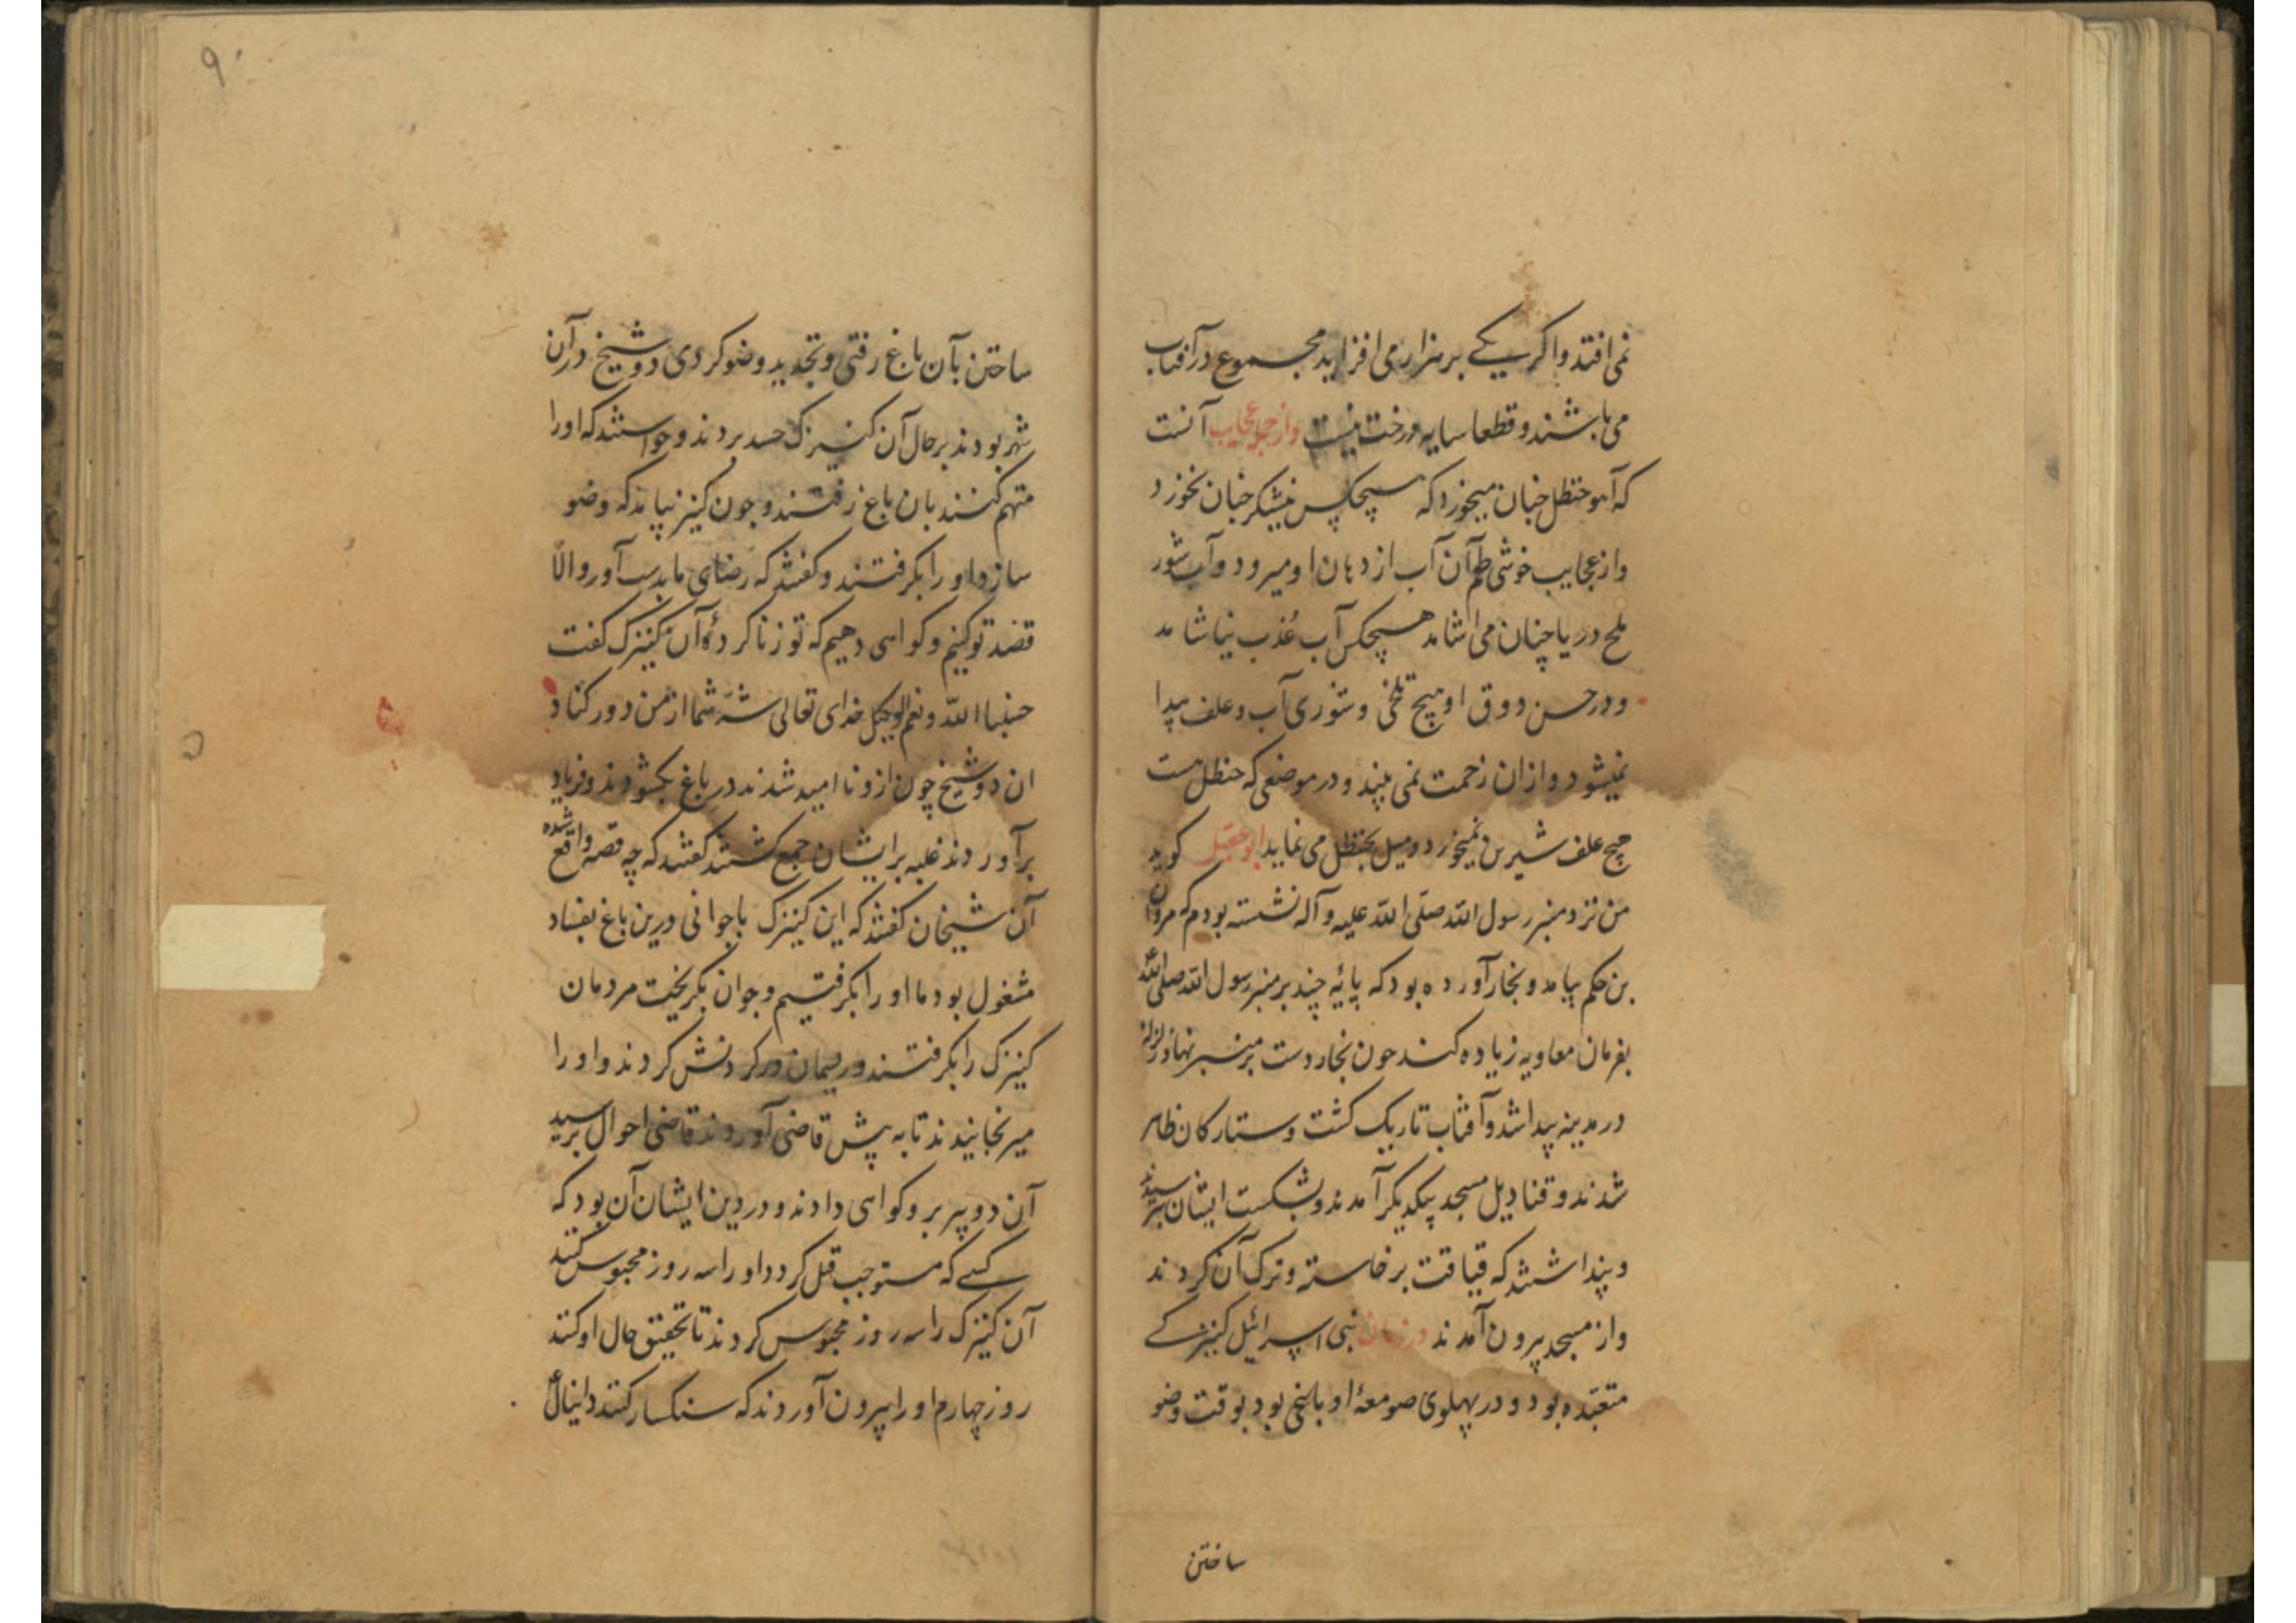 نمی افتد و اکر یکے بر هزار می افزاید مجموع در آفتاب
می باشند و قطعا سایه درخت نیست و از جمله عجایب آنست
که آهو حنظل جنان میخورد که هیچکس نیشکر جنان نخورد
و از عجایب خوشی طعم آن آب از دهان او میرود و آب شور
ملح دریا چنان می اشامد هیچکس آب عُذب نیاشامد
و در حسن ذوق او هیچ تلخی و شوری آب و علف پیدا
نمیشود و ازان زحمت نمی بیند و در موضعی که حنظل هست
هیچ علف شیرین نمیخورد و میل بحنظل می نماید ابو عقیل کوید
من نزد منبر رسول الله صلی الله علیه و آله نشسته بودم که مروان
بن حکم بیامد و نجار آورده بود که پایهٔ چند بر منبر رسول الله صلی الله
بفرمان معاویه زیاده کند جون نجار دست بر منبر نهاد زلزله
در مدینه پیدا شد و آفتاب تاریک کشت و ستارکان ظاهر
شدند و قنادیل مسجد بیکدیکر آمدند و بشکست ایشان بترسیدند
و پنداشتند که قیامت برخاسته و ترک آن کردند
و از مسجد بیرون آمدند در زمان بنی اسرائیل کنیزکے
متعبّده بود و در پهلوی صومعهٔ او باغی بود بوقت وضو
ساختن
۹۰
ساختن بآن باغ رفتی و تجدید وضو کردی دو شیخ در آن
شهر بودند بر حال آن کنیزک حسد بردند و خواستند که او را
متهم کنند بان باغ رفتند و جون کنیز بیامد که وضو
سازد او را بکرفتند و کفتند که رضای ما بدست آور و الّا
قصد تو کنیم و کواهی دهیم که تو زنا کردهٔ آن کنیزک کفت
حسبنا الله و نعم الوکیل خدای تعالی شَرّ شما از من دور کناد
ان دو شیخ چون ازو نا امید شدند در باغ بکشودند و فریاد
برآوردند غلبه بر ایشان جمع کشتند کفتند که چه قصه واقع شده
آن شیخان کفتند که این کنیزک با جوانی درین باغ بفساد
مشغول بود ما او را بکرفتیم و جوان بکریخت مردمان
کنیزک را بکرفتند و ریسمان در کردنش کردند و او را
میرنجانیدند تا به پیش قاضی آوردند قاضی احوال پرسید
آن دو پیر برو کواهی دادند و در دین ایشان آن بود که
کسے که مستوجب قتل کردد او را سه روز محبوس کنند
آن کنیزک را سه روز محبوس کردند تا تحقیق حال او کنند
روز چهارم او را بیرون آوردند که سنکسار کنند دانیال ع